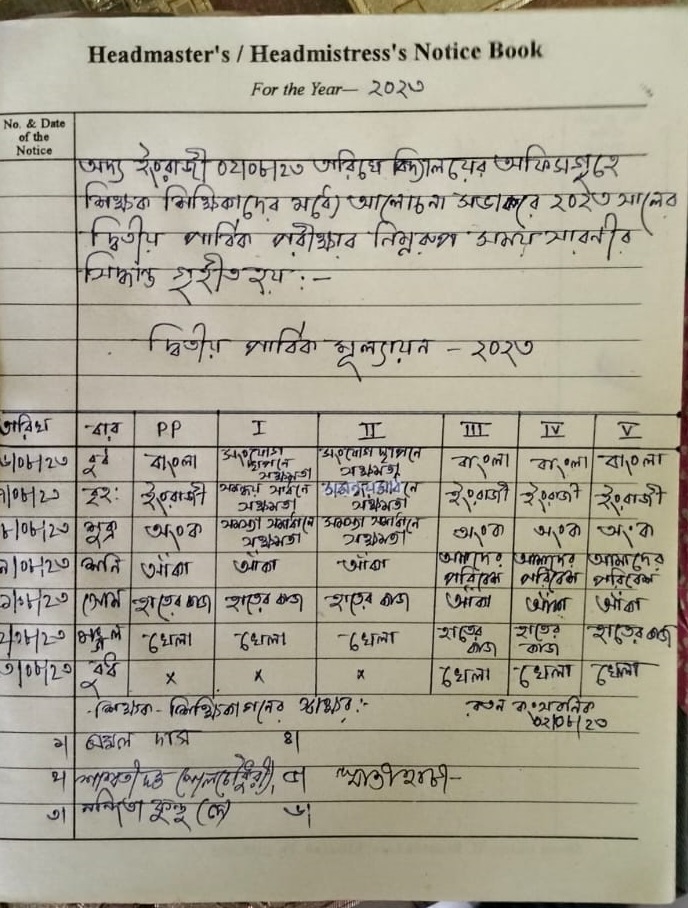 Headmaster's / Headmistress's Notice Book
For the Year— ২০২৩
No. & Date
of the
Notice
অদ্য ইংরাজী ০২/০৮/২৩ তারিখে বিদ্যালয়ের অফিসগৃহে
শিক্ষক শিক্ষিকাদের মধ্যে আলোচনা সভাকরে ২০২৩ সালের
দ্বিতীয় পার্বিক পরীক্ষার নিম্নরূপ সময় সারনীর
সিদ্ধান্ত গৃহীত হয় :-
দ্বিতীয় পার্বিক মূল্যায়ন - ২০২৩
তারিখ বার PP I II III IV V
/০৮/২৩ বুধ বাংলা সংযোগ স্থাপনে সক্ষমতা সংযোগ স্থাপনে সক্ষমতা বাংলা বাংলা বাংলা
/০৮/২৩ বৃহঃ ইংরাজী সমন্বয় সাধনে সক্ষমতা সমন্বয় সাধনে সক্ষমতা ইংরাজী ইংরাজী ইংরাজী
/০৮/২৩ শুক্র অংক সমস্যা সমাধানে সক্ষমতা সমস্যা সমাধানে সক্ষমতা অংক অংক অংক
/০৮/২৩ শনি আঁকা আঁকা আঁকা আমাদের পরিবেশ আমাদের পরিবেশ আমাদের পরিবেশ
/০৮/২৩ সোম হাতের কাজ হাতের কাজ হাতের কাজ আঁকা আঁকা আঁকা
/০৮/২৩ মঙ্গল খেলা খেলা খেলা হাতের কাজ হাতের কাজ হাতের কাজ
/০৮/২৩ বুধ x x x খেলা খেলা খেলা
শিক্ষক - শিক্ষিকাগনের স্বাক্ষর :-
০২/০৮/২৩
১| অমল দাস ৪|
২| শাশ্বতী দত্ত (পালচৌধুরী), ৫|
৩| নন্দিতা কুন্ডু (দে) ৬|